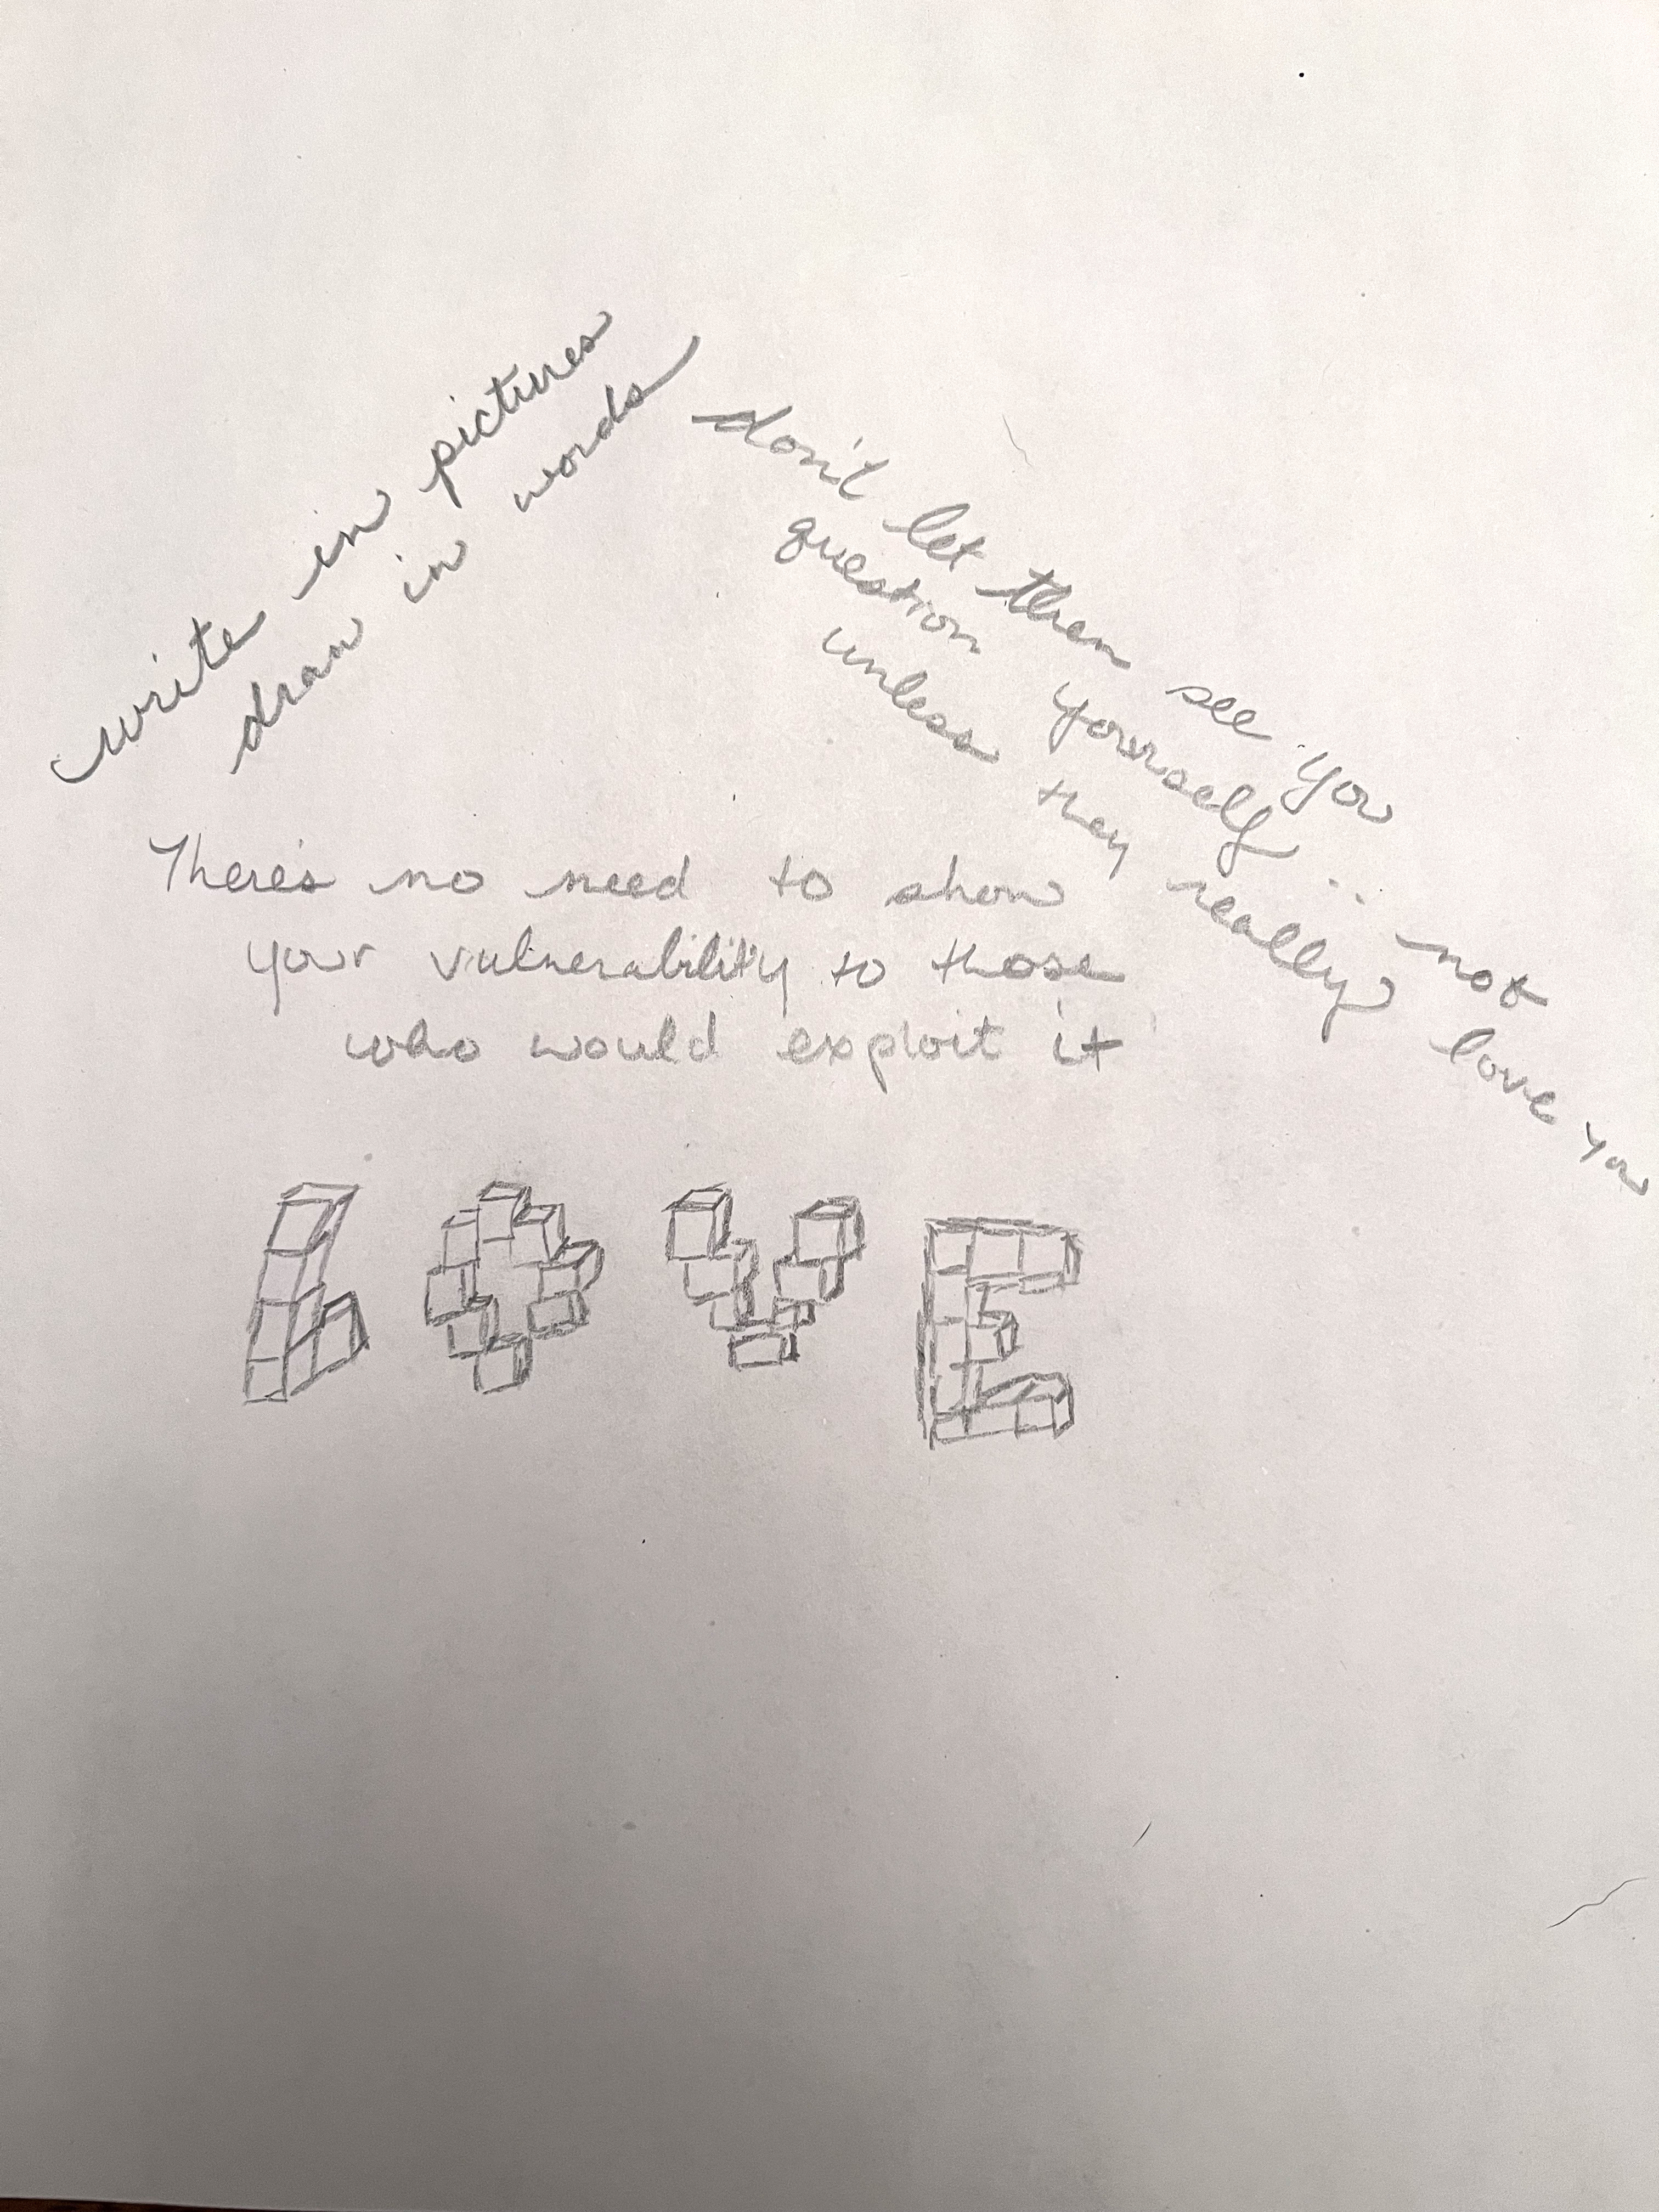 write in pictures
draw in words
don't let them see you
question yourself... not
unless they really love you
There's no need to show
your vulnerability to those
who would exploit it
LOVE